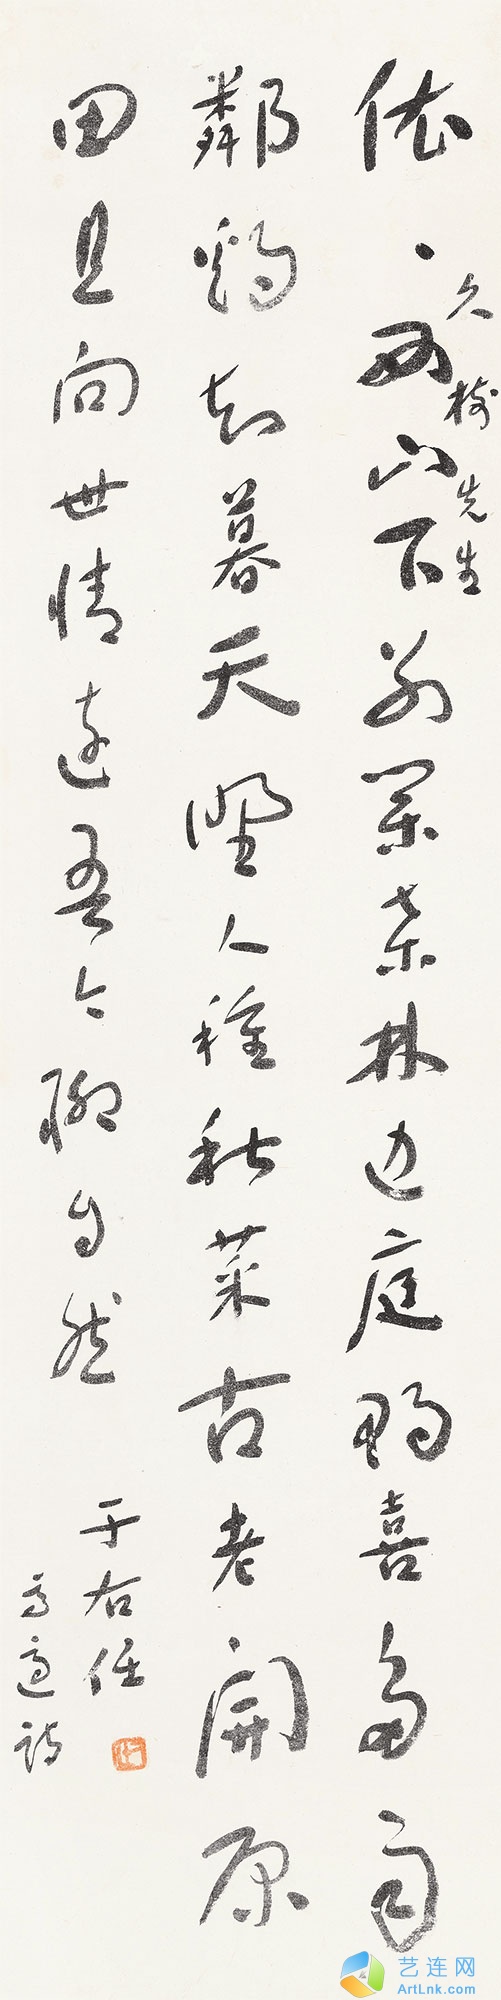 久先生
依〻西山下別業桑林边庭鸭喜多雨
鄰鷄知暮天野人種秋菜古老開原
田且向世情遠吾今聊自然
于右任
高適詩
艺连网
ArtLnk.com